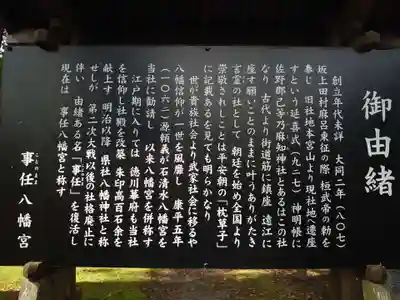 御由緒
創立年代未詳 大同二年(八〇七)
坂上田村麻呂東征の際 桓武帝の勅を
奉じ 旧社地本宮山より現社地へ遷座
すという延喜式(九二七) 神明帳に
佐野郡己等乃麻知神社とあるはこの社
なり 古代より街道筋に鎮座 遠江に
座す願いごとのままに叶うありがたき
言霊の社として 朝廷を始め全国より
崇敬されしことは平安朝の「枕草子」
に記載あるを見ても明らかなり
世が貴族社会より武家社会に移るや
八幡信仰が一世を風靡し 康平五年
(一〇六二)源頼義が石清水八幡宮を
当社に勧請し 以来八幡宮を併称す
江戸期に入りては 徳川幕府も当社
を信仰し社殿を改築 朱印高百石余を
献上す 明治以降 県社八幡神社と称
せしが 第二次大戦以後の社格廃止に
伴い 由緒ある名「事任」を復活し
現在は 事任八幡宮と称す
事任八幡宮